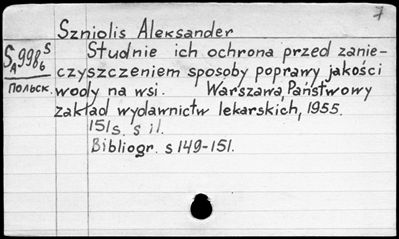 7
Szniolis Aleksander
S A 998 S 6
Польск.
Studnie ich ochrona przed zanie-
czyszczeniem sposoby poprawy jakości
wody na wsi. Warszawa, Państwowy
zakład wydawnictw lekarskich, 1955.
151 s. s il.
Bibliogr. s 149-151.